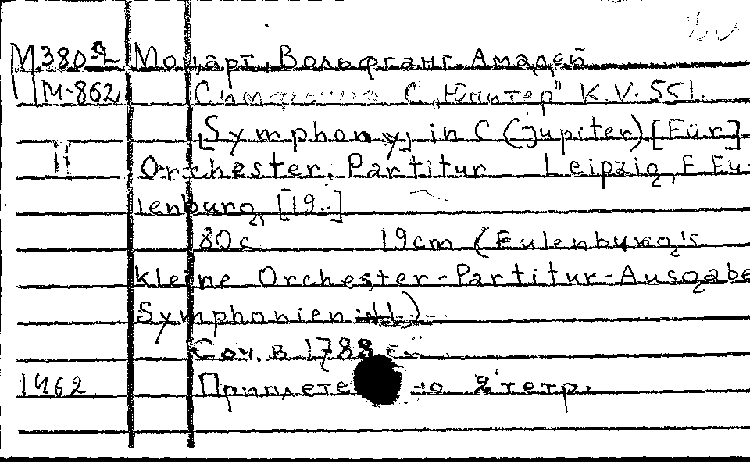 М380 Моцарт, Вольфганг Амадей
М-862 Симфония C „Юпитер" K.V. 551.
[Symphony] in C (Jupiter) [Für]
Orchester. Partitur Leipzig, E Eu-
lenburg, [19..]
80 с 19cm (Eulenburg's
kleine Orchester-Partitur-Ausgabe
Symphonien
Соч. в 1788
1962 тетр.